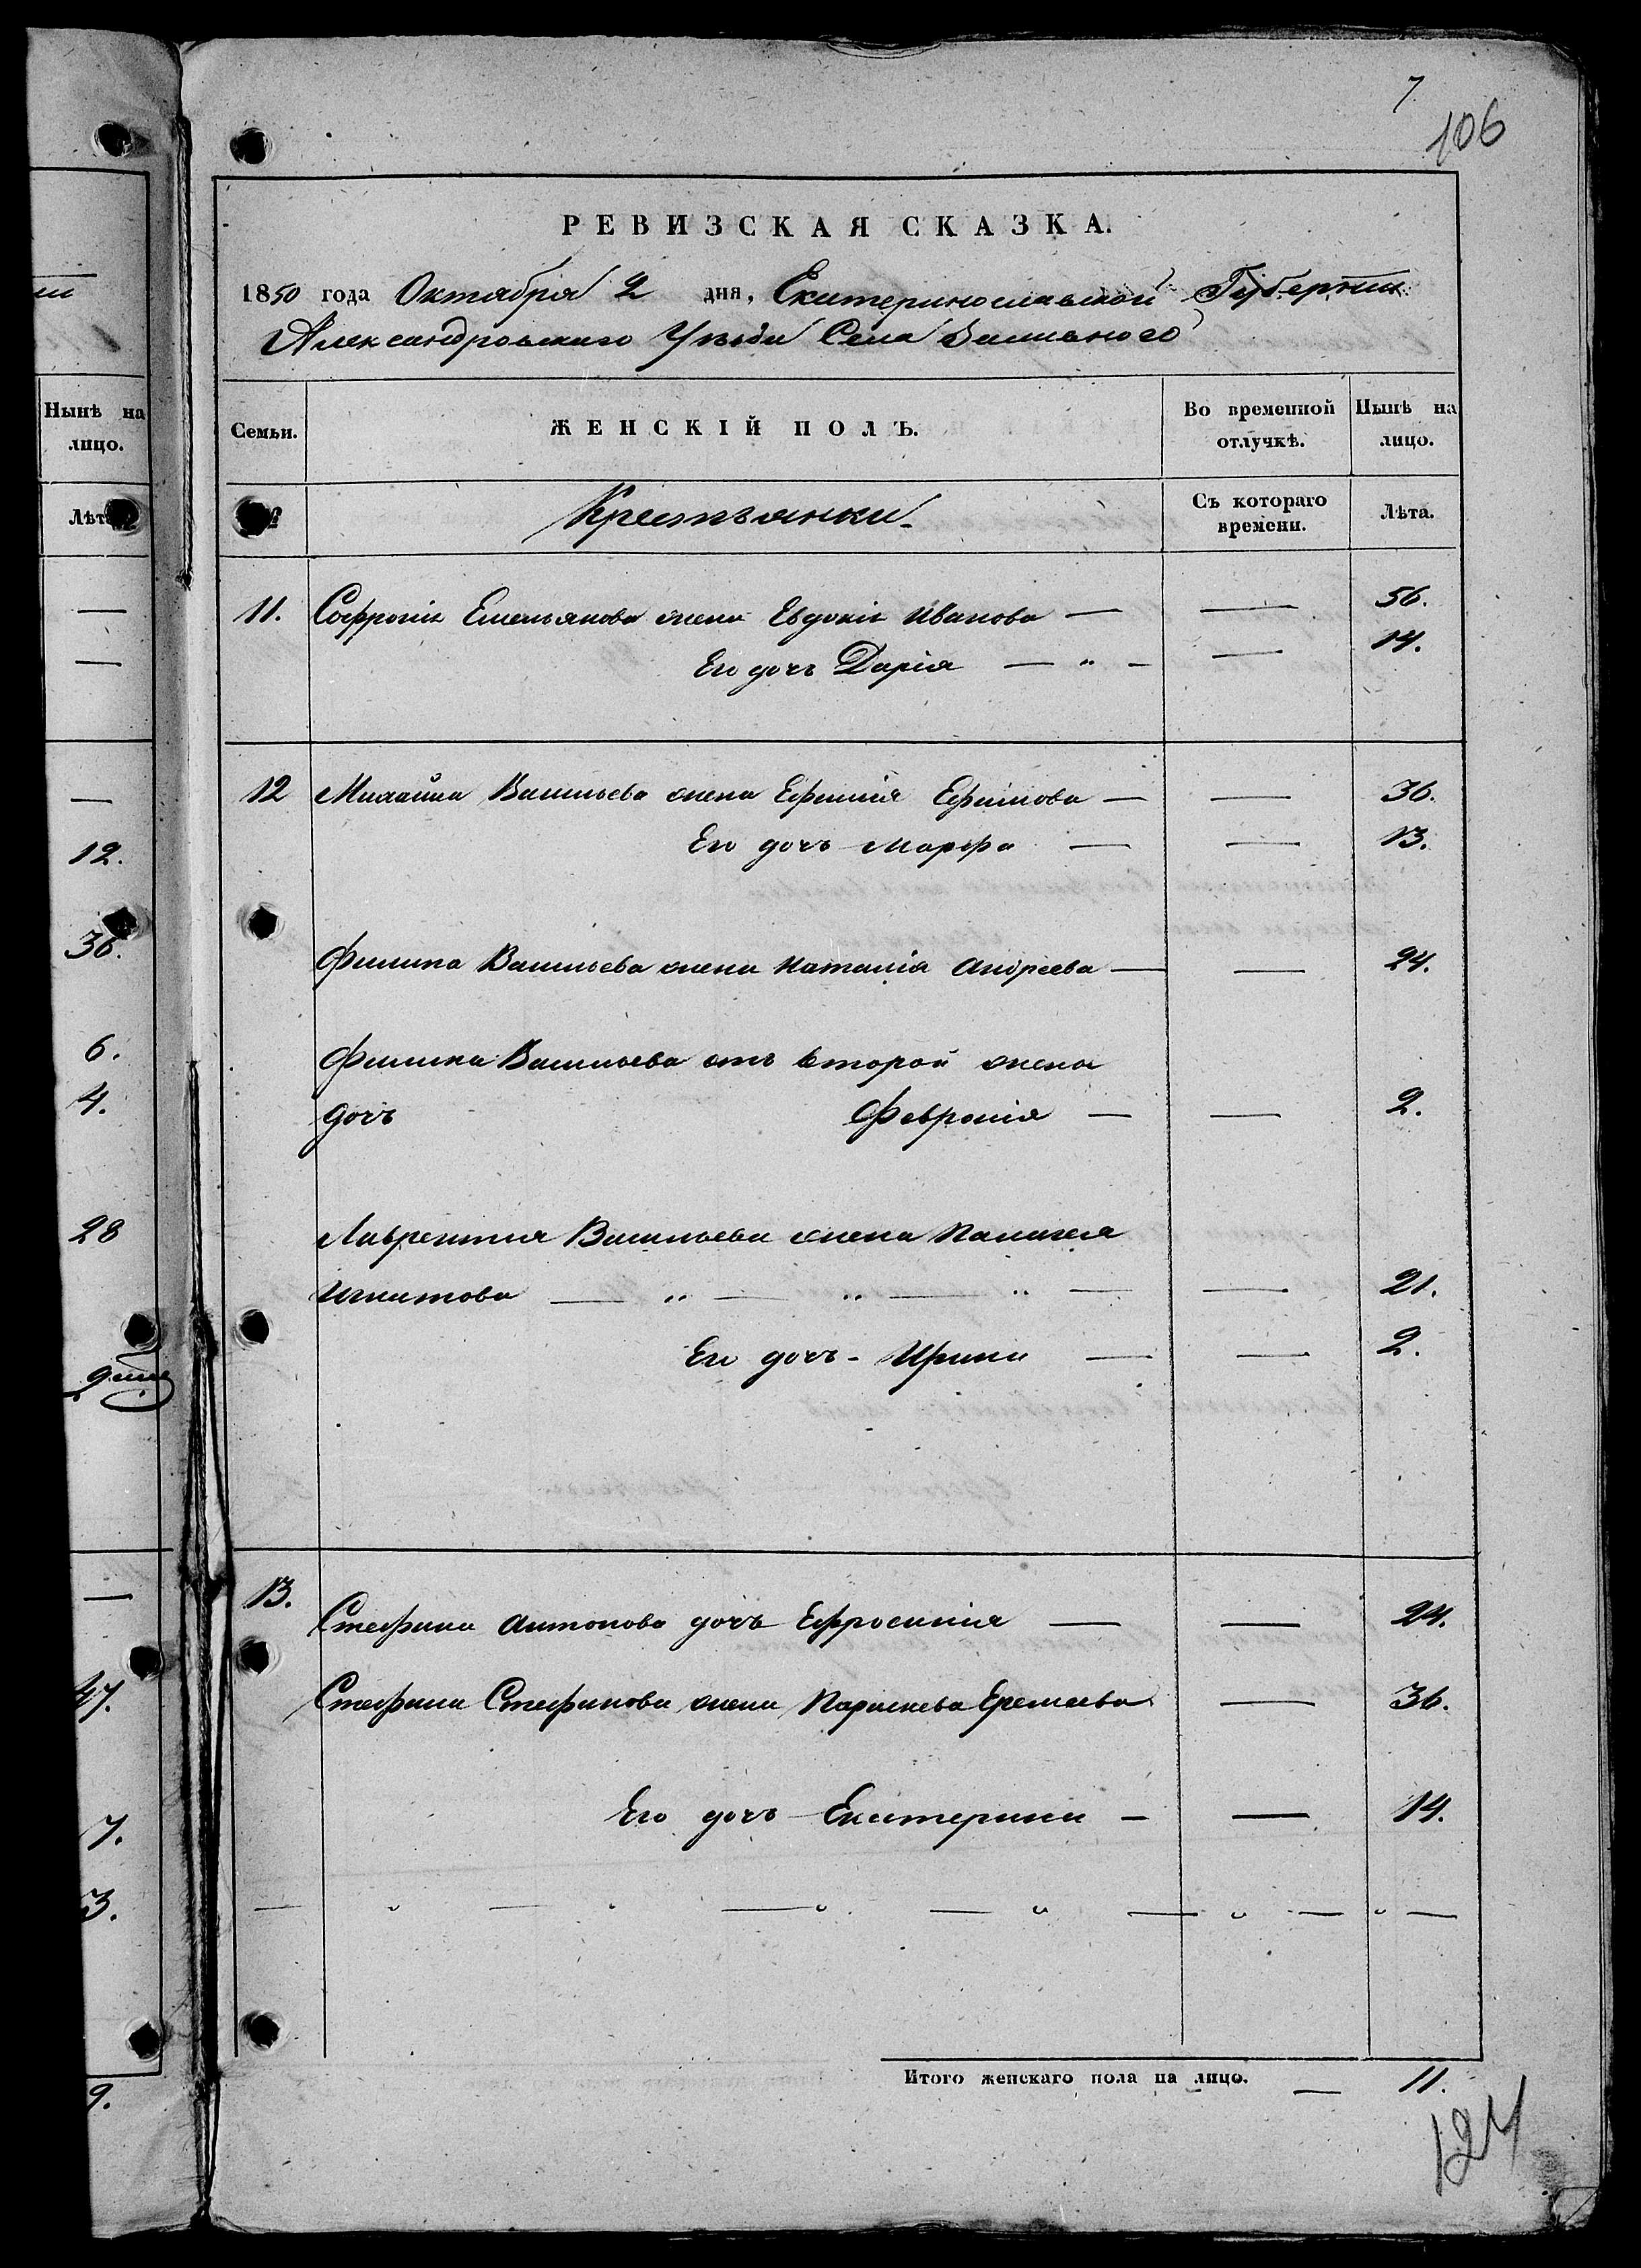 7
106
РЕВИЗСКАЯ СКАЗКА.
1850 года Октября 2 дня, Екатеринославской Губернiи
Александровскаго Уѣзда Села
Нынѣ на лицо.
Лѣта
Семьи.
ЖЕНСКІЙ ПОЛЪ.
Во временной отлучкѣ.
Нынѣ на лицо.
№
Крестьянки
Съ котораго времени.
Лѣта.
11. Софронія Емельянова жена Евдокія Иванова — — 56.
Его дочь Дарія — " — — 14.
12 Михайла Васильева жена Ефимія Ефимова — — 36.
Его дочь Марфа — — 13.
Филипа Васильева жена Наталія Андреева — — 24.
Филипа Васильева отъ второй жены
дочь Февронія — — 2.
Лаврентія Васильева жена Палагея
Игнатова — " — " — " — — 21.
Его дочь - Ирина — — 2.
13. Стефана Антонова дочь Ефросинія — — 24.
Стефана Стефанова жена Параскева Еремеева — 36.
Его дочь Екатерина — — 14.
— " — " — " — " — " — " —
Итого женскаго пола на лицо. — 11.
124
—
—
—
12.
36.
6.
4.
28
—
47.
7.
3.
9.